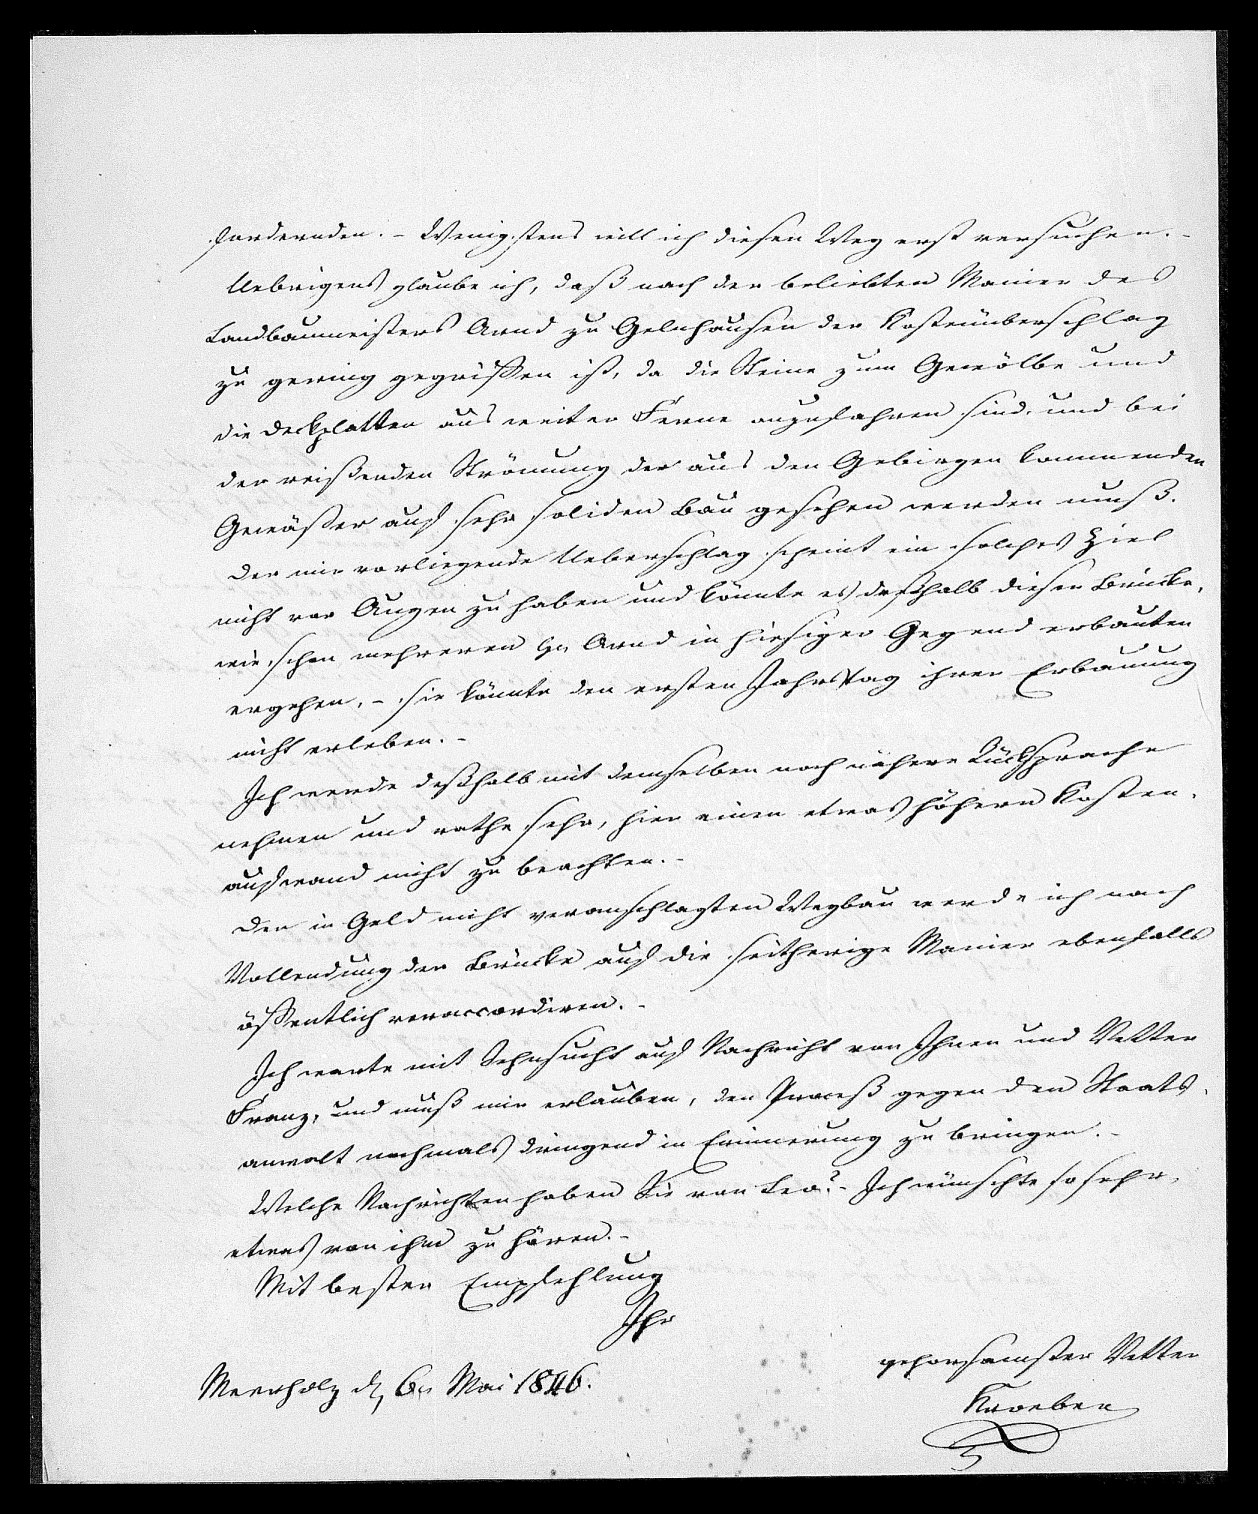 fordernden. - Wenigstens will ich diesen Weg erst versuchen. -
Uebrigens glaube ich, daß nach der beliebten Manier des
Landbaumeisters Arnd zu Gelnhausen der Kostenüberschlag
zu gering gegriffen ist, da die Steine zum Gewölbe und
die Deckplatten aus weiter Ferne anzufahren sind, und bei
der reißenden Strömung der aus den Gebirgen kommenden
Gewäßer auf sehr soliden Bau gesehen werden muß.
Der mir vorliegende Ueberschlag scheint ein solches Ziel
nicht vor Augen zu haben und könnte es deßhalb dieser Brücke,
wie schon mehreren Hn Arnd in hiesiger Gegend erbauten
ergehen, - sie könnte den ersten Jahrstag ihrer Erbauung
nicht erleben. -
Ich werde deßhalb mit demselben noch nähere Rücksprache
nehmen und rathe sehr, hier einen etwas höhern Kosten-
aufwand nicht zu beachten. -
Den in Geld nicht veranschlagten Wegbau werde ich nach
Vollendung der Brücke auf die seitherige Manier ebenfalls
öffentlich veraccordiren. -
Ich warte mit Sehnsucht auf Nachricht von Ihnen und Vetter
Franz, und muß mir erlauben, den Proceß gegen den Staats-
anwalt nochmals dringend in Erinnerung zu bringen. -
Welche Nachrichten haben Sie von Leo? - Ich wünschte so sehr,
etwas von ihm zu hören. -
Mit bester Empfehlung
Ihr
gehorsamster Vetter
Meerholz d. 6n Mai 1846.
Kroeber